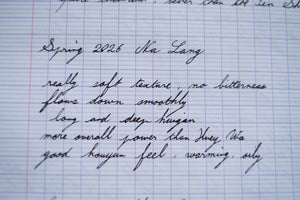 than the
Spring 2026 Na Lang
really soft texture, no bitterness
flows down smoothly
long and deep huigan
more overall power than Huey Wa
good houyun feel, warming, oily